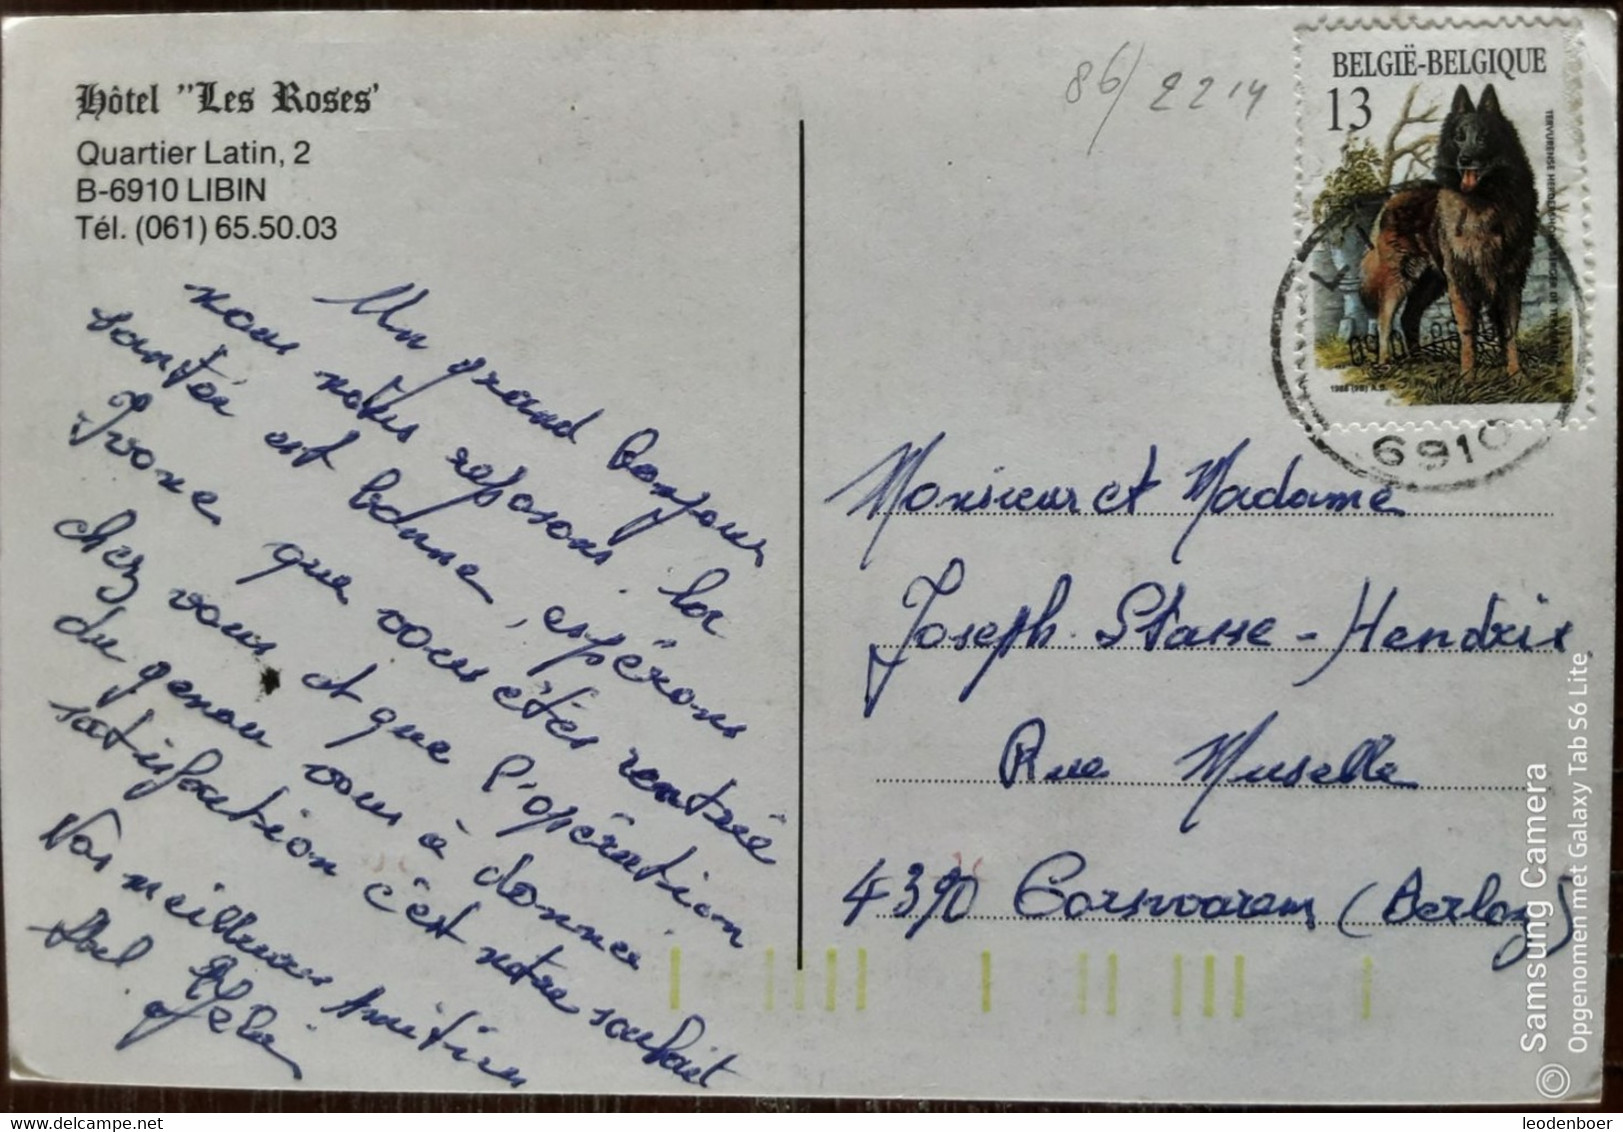 Hôtel "Les Roses"
Quartier Latin, 2
B-6910 LIBIN
Tél. (061) 65.50.03
Un grand bonjour
nous nous reposons. la
santée est bonne, espérons
Ivone que vous étés rentrée
chez vous et que l'opération
du genou vous à donné
satisfaction c'est notre souhait
Vos meilleures Amitiées
Abel
86/2214
BELGIË-BELGIQUE
13
6910
Monsieur et Madame
Joseph Stasse-Hendrix
Rue Muselle
4390 Corswarem (Berloz)
© Samsung Camera
Opgenomen met Galaxy Tab S6 Lite
https://www.delcampe.net
leodenboer